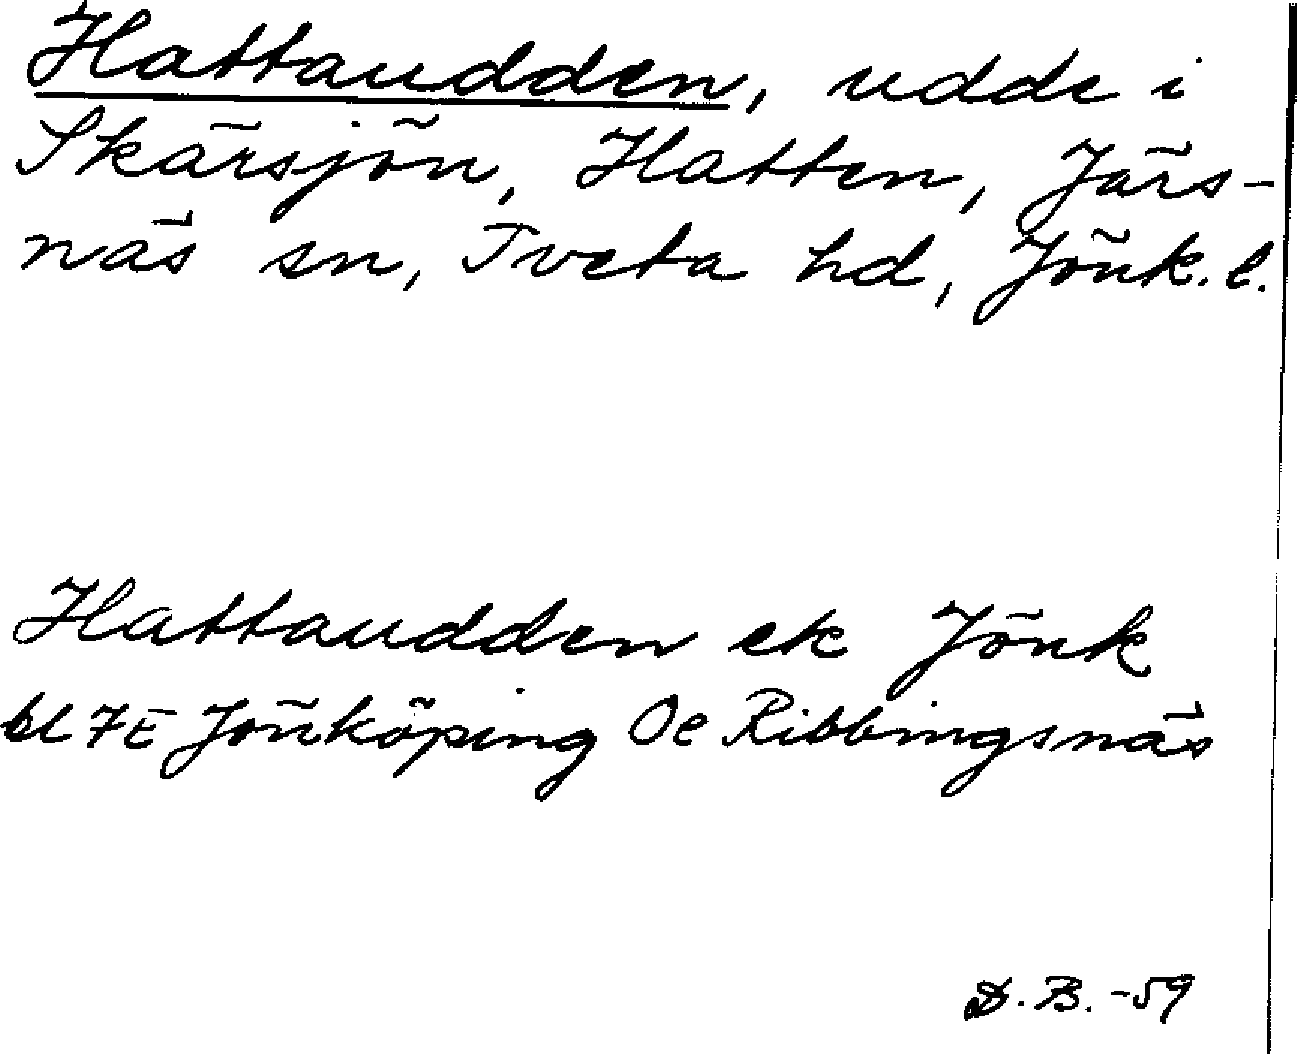 Hattaudden, udde i
Skärsjön, Hatten, Järs-
näs sn, Tveta hd, Jönk. l.
Hattaudden ek Jönk
bl 7E Jönköping Oe Ribbingsnäs
D. B. -59